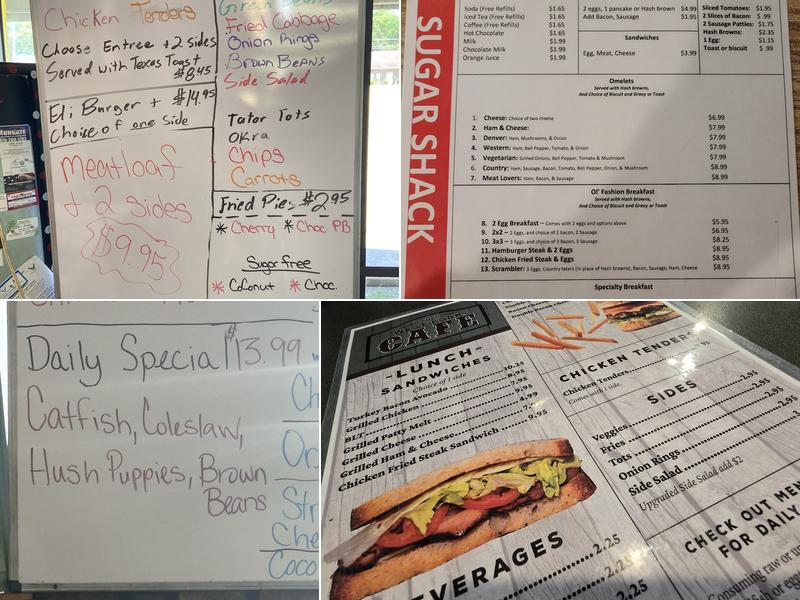 Chicken Tenders
Choose Entree + 2 Sides
Served with Texas Toast
$8.45
Eli Burger + $14.95
Choice of one Side
Meatloaf
+ 2 sides
$9.95
Green Beans
Fried Cabbage
Onion Rings
Brown Beans
Side Salad
Tator Tots
Okra
Chips
Carrots
Fried Pies $2.95
* Cherry * Choc PB
Sugar free
* Coconut * Choc.
HUNGATE
SUGAR SHACK
Soda (Free Refills) $1.65
Iced Tea (Free Refills) $1.65
Coffee (Free Refills) $1.65
Hot Chocolate $1.65
Milk $1.99
Chocolate Milk $1.99
Orange Juice $1.99
2 eggs, 1 pancake or Hash brown $4.99
Add Bacon, Sausage $1.95
Sandwiches
Egg, Meat, Cheese $3.99
Sliced Tomatoes: $1.95
2 Slices of Bacon: $ .99
2 Sausage Patties: $1.75
Hash Browns: $2.35
1 Egg: $1.15
Toast or biscuit $ .99
Omelets
Served with Hash browns,
And Choice of Biscuit and Gravy or Toast
1. Cheese: Choice of two cheese $6.99
2. Ham & Cheese: $7.99
3. Denver: Ham, Mushrooms, & Onion $7.99
4. Western: Ham, Bell Pepper, Tomato, & Onion $7.99
5. Vegetarian: Grilled Onions, Bell Pepper, Tomato & Mushroom $7.99
6. Country: Ham, Sausage, Bacon, Tomato, Bell Pepper, Onion, & Mushroom $8.99
7. Meat Lovers: Ham, Bacon, & Sausage $8.99
Ol' Fashion Breakfast
Served with Hash Browns,
And Choice of Biscuit and Gravy or Toast
8. 2 Egg Breakfast – Comes with 2 eggs and options above $5.95
9. 2x2 – 2 Eggs, and choice of 2 bacon, 2 Sausage $6.95
10. 3x3 – 3 Eggs, and choice of 3 Bacon, 3 Sausage $8.25
11. Hamburger Steak & 2 Eggs $8.95
12. Chicken Fried Steak & Eggs $8.95
13. Scrambler: 3 Eggs, Country taters (in place of Hash browns), Bacon, Sausage, Ham, Cheese $8.95
Specialty Breakfast
Daily Special $13.99
Catfish, Coleslaw,
Hush Puppies, Brown
Beans
Ch
Or
Str
Che
Coco
CAFE
-LUNCH-
SANDWICHES
Choice of 1 side
Turkey Bacon Avocado 10.25
Grilled Chicken 8.95
BLT 7.95
Grilled Patty Melt
Grilled Cheese 4.99
Grilled Ham & Cheese
Chicken Fried Steak Sandwich 9.95
BEVERAGES
2.25
2.25
2.25
CHICKEN TENDERS
Chicken Tenders
Comes with 1 side
SIDES
Veggies 2.95
Fries 2.95
Tots 2.95
Onion Rings
Side Salad
Upgraded Side Salad add $2
CHECK OUT MEN
FOR DAILY
Consuming raw or u